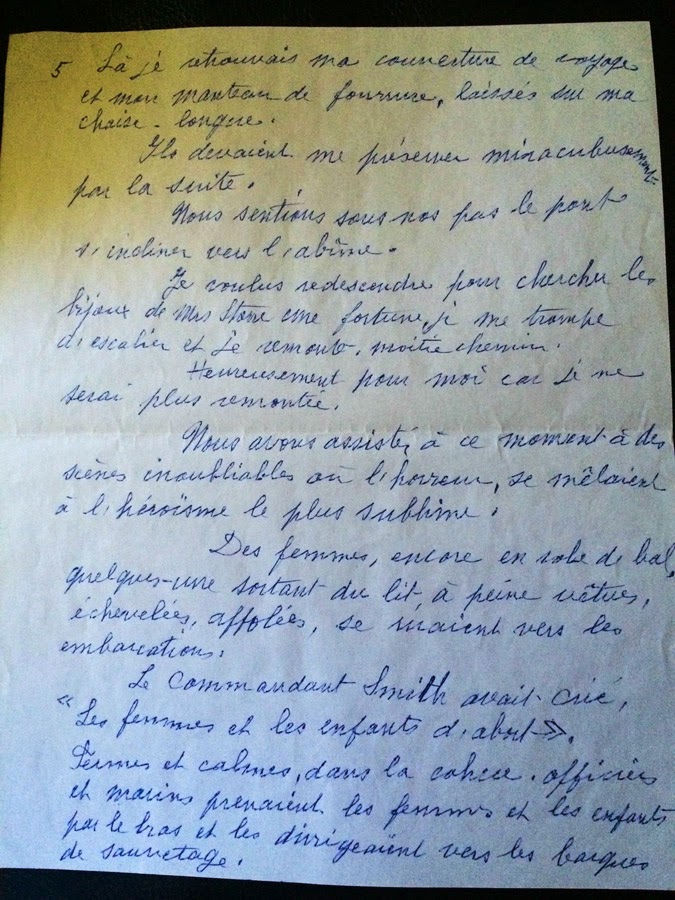 5 Là je retrouvais ma couverture de voyage
et mon manteau de fourrure, laissés sur ma
chaise-longue.
Ils devaient me préserver miraculeusement
par la suite.
Nous sentions sous nos pas le pont
s'incliner vers l'abîme.
Je voulus redescendre pour chercher les
bijoux de Mrs Stone une fortune, je me trompe
d'escalier et je remonte, moitié chemin.
Heureusement pour moi car je ne
serai plus remontée.
Nous avons assisté, à ce moment à des
scènes inoubliables où l'horreur, se mêlaient
à l'héroïsme le plus sublime.
Des femmes, encore en robe de bal,
quelques-une sortant du lit, à peine vêtues,
échevelées, affolées, se ruaient vers les
embarcations.
Le Commandant Smith avait crié,
« Les femmes et les enfants d'abort ».
Fermes et calmes, dans la cohue, officiers
et marins prenaient les femmes et les enfants
par le bras et les dirigeaient vers les barques
de sauvetage.